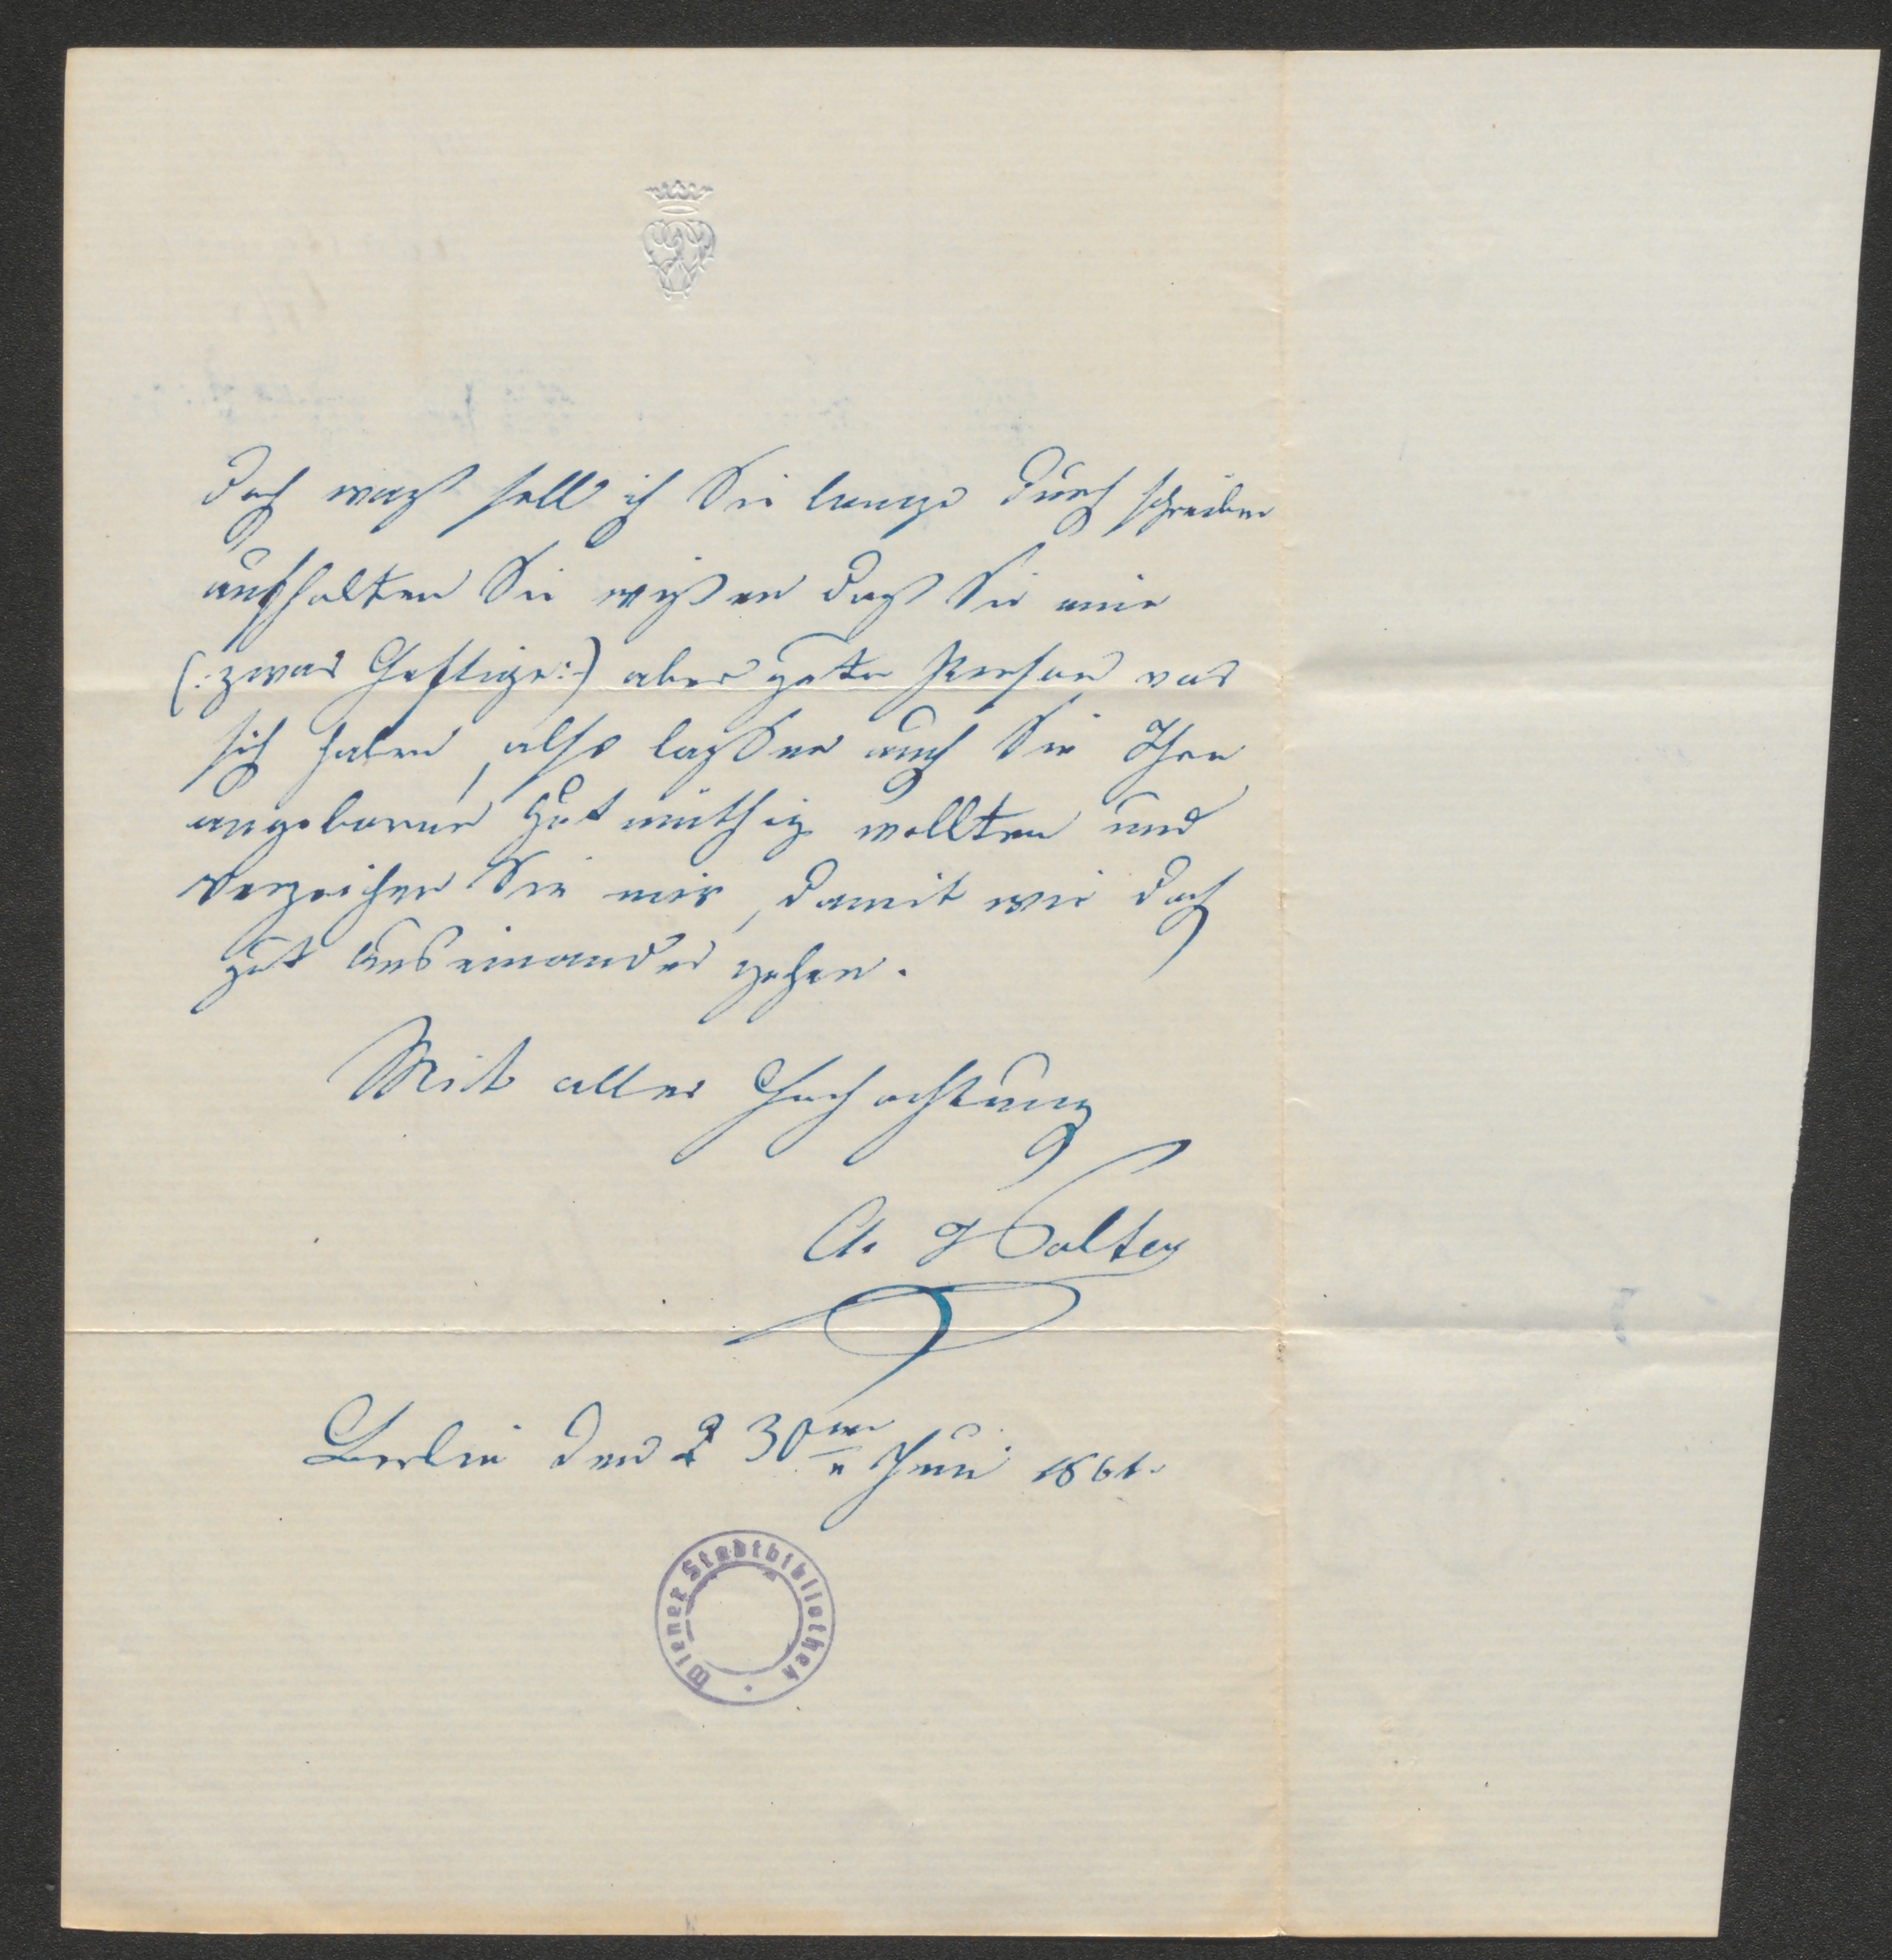 doch wozu soll ich Sie lange durch schreiben
aufhalten Sie wißen daß Sie eine
(: zwar Heftige :) aber gute Person vor
sich haben, also laßen auch Sie Ihre
angeborne Gutmüthig wollten und
verzeihen Sie mir, damit wir doch
gut auseinander gehen.
Mit aller Hochachtung
Berlin den 30ten Juni 1861.
Wiener Stadtbibliothek